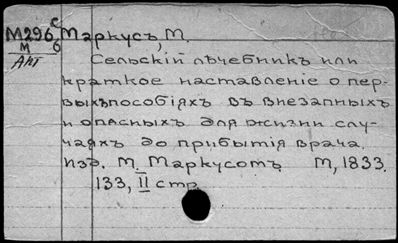 с
М296 Маркусъ, М.
М 6
Апт
Сельскій лѣчебникъ или
краткое наставленіе о пер-
выхъ пособіяхъ въ внезапныхъ
и опасныхъ для жизни слу-
чаяхъ до прибытія врача.
Изд. М. Маркусомъ М, 1833.
133, II стр.